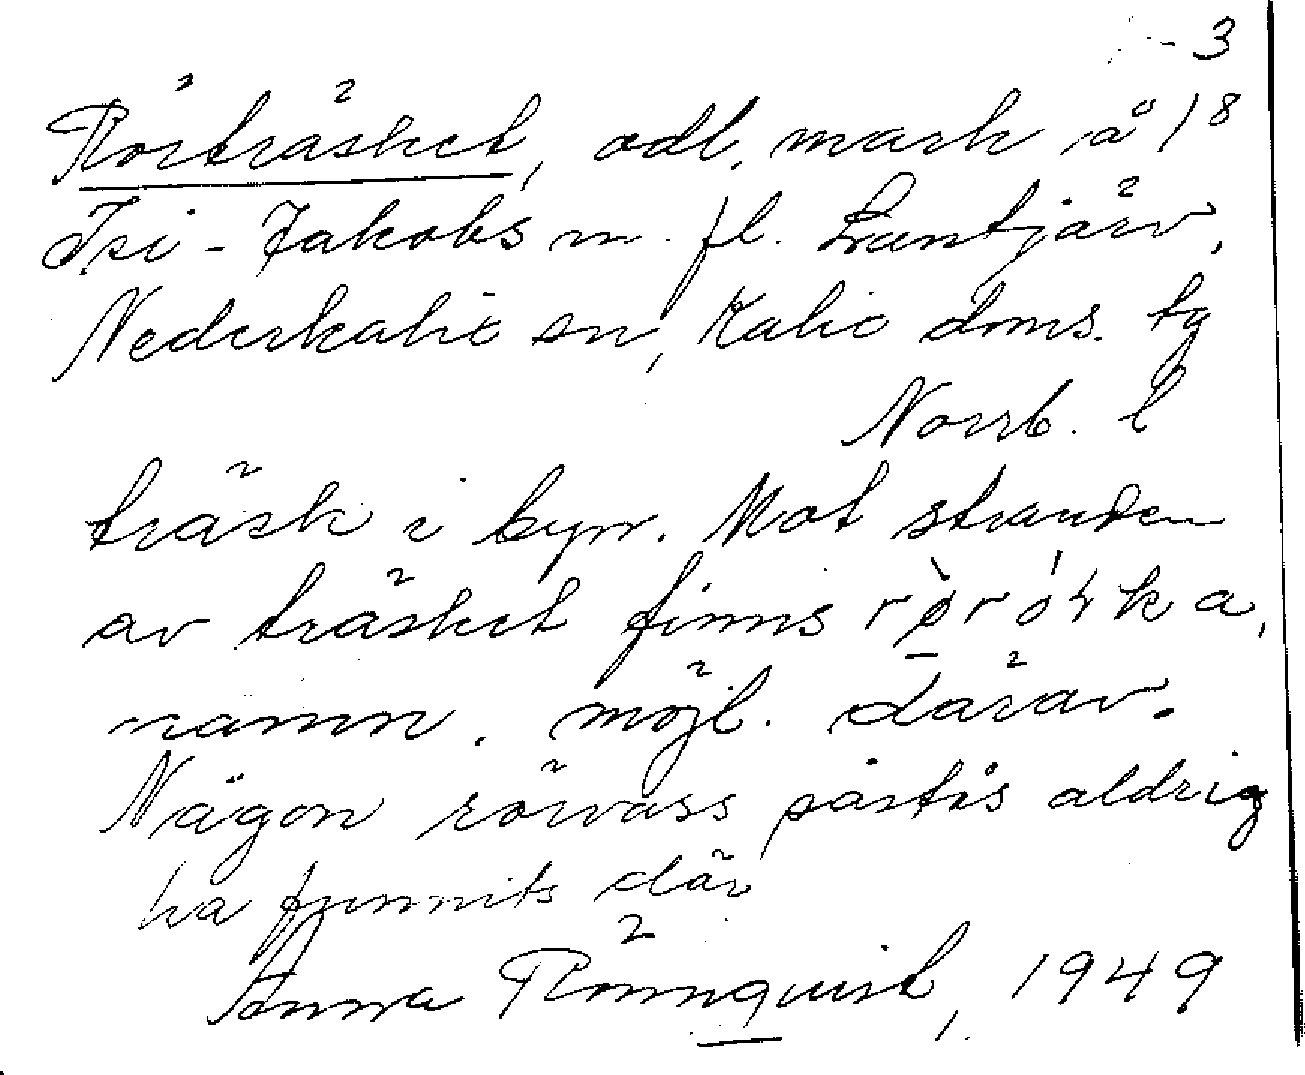 -3
Rörträsket, odl. mark å 1 8
Isi-Jakobs m. fl. Lantjärv,
Nederkalix sn, Kalix doms. tg
Norrb. l
träsk i byn. Mot stranden
av träsket finns
namn. möjl. därav.
Någon rörvass påstås aldrig
ha funnits där
Anna Rönnquist, 1949